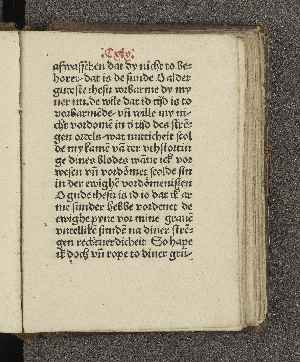 Cxlv
afwasschen dat dy nicht to be-
horet· dat is de sunde O alder
guteste ihesu vorbarme dy my
ner nu·de wile dat id tijd is to
vorbarmēde· vn̄ wille my ni-
cht vordomē in d̄ tijd des strē-
gen ordels· wat nutticheit scol
de my kamē vā der vthstortin
ge dines blodes wāne ick vor
wesen vn̄ vordōmet scolde sin
in der ewighē vordōmenissen
O gude ihesu is id is dat ik ar
me sunder hebbe vordenet de
ewighe pyne vor mine grauē
vnrellike sundē na diner strē-
gen rechtuerdicheit So hape
ik doch vn̄ rope to diner gru-